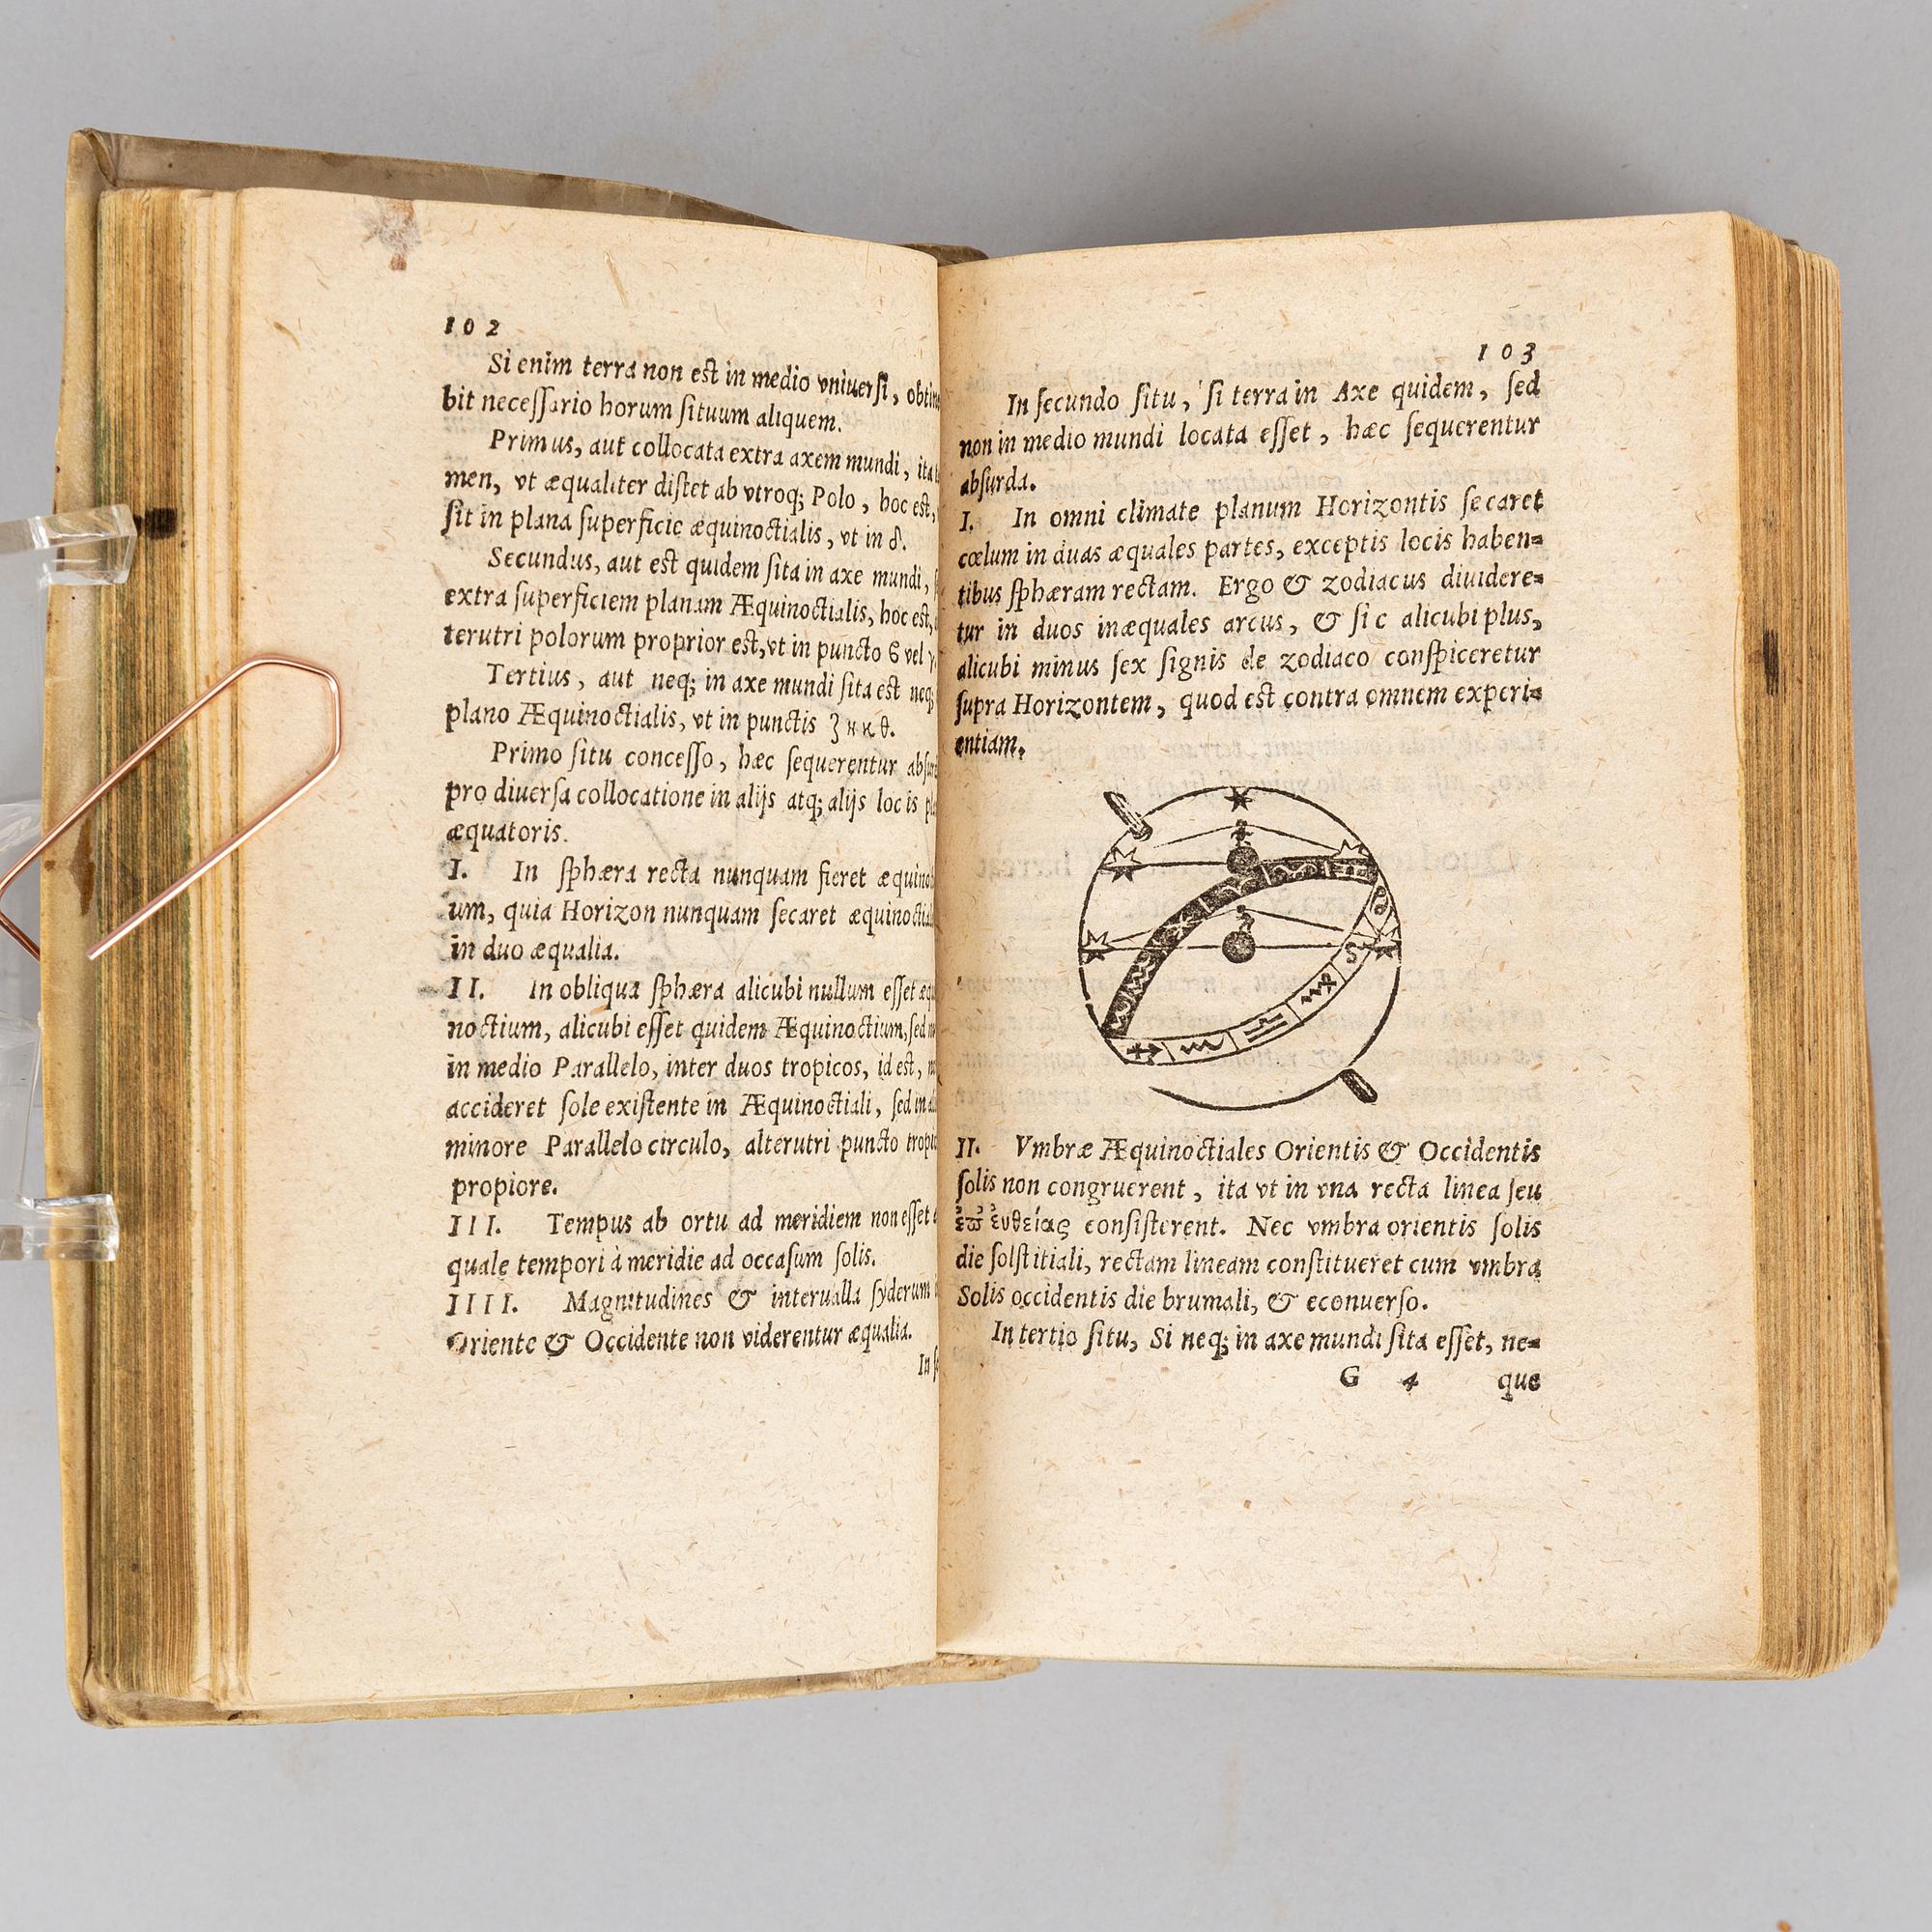 102
Si enim terra non est in medio vniuersi, obtine
bit necessario horum situum aliquem.
Primus, aut collocata extra axem mundi, ita
men, vt æqualiter distet ab vtroq; Polo, hoc est,
sit in plana superficie æquinoctialis, vt in δ.
Secundus, aut est quidem sita in axe mundi,
extra superficiem planam Æquinoctialis, hoc est,
terutri polorum proprior est, vt in puncto ϐ vel γ
Tertius, aut neq; in axe mundi sita est neq;
plano Æquinoctialis, vt in punctis ζ η κ θ.
Primo situ concesso, hæc sequerentur absur
pro diuersa collocatione in alijs atq; alijs locis
æquatoris.
I. In sphæra recta nunquam fieret æquino
um, quia Horizon nunquam secaret æquinoctia
in duo æqualia.
II. In obliqua sphæra alicubi nullum esset æqu
noctium, alicubi esset quidem Æquinoctium, sed
in medio Parallelo, inter duos tropicos, id est,
accideret sole existente in Æquinoctiali, sed in
minore Parallelo circulo, alterutri puncto tropic
propiore.
III. Tempus ab ortu ad meridiem non esset
quale tempori à meridie ad occasum solis.
IIII. Magnitudines & interualla syderum
Oriente & Occidente non viderentur æqualia.
In se
103
In secundo situ, si terra in Axe quidem, sed
non in medio mundi locata esset, hæc sequerentur
absurda.
I. In omni climate planum Horizontis secaret
cœlum in duas æquales partes, exceptis locis haben=
tibus sphæram rectam. Ergo & zodiacus diuidere=
tur in duos inæquales arcus, & sic alicubi plus,
alicubi minus sex signis de zodiaco conspiceretur
supra Horizontem, quod est contra omnem experi=
entiam.
II. Vmbræ Æquinoctiales Orientis & Occidentis
solis non congruerent, ita vt in vna recta linea seu
ἐπ' ἐυθείας consisterent. Nec vmbra orientis solis
die solstitiali, rectam lineam constitueret cum vmbra
Solis occidentis die brumali, & econuerso.
In tertio situ, Si neq; in axe mundi sita esset, ne=
G 4 que